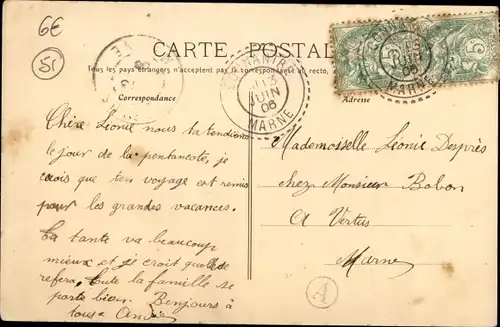 6E
51
CARTE POSTALE
Tous les pays étrangers n'acceptent pas la correspondance au recto,
Correspondance
Adresse
13
JUIN
06
MARNE
JUIN
06
MARNE
5
Chère Léonie nous t'attendions
le jour de la pentancote, je
crois que ton voyage est remis
pour les grandes vacances.
Ta tante va beaucoup
mieux et je croit quelle se
refera, toute la famille se
porte bien. Benjours à
tous
Mademoiselle Léonie Desprès
chez Monsieur Bobon
A Vertus
Marne
A